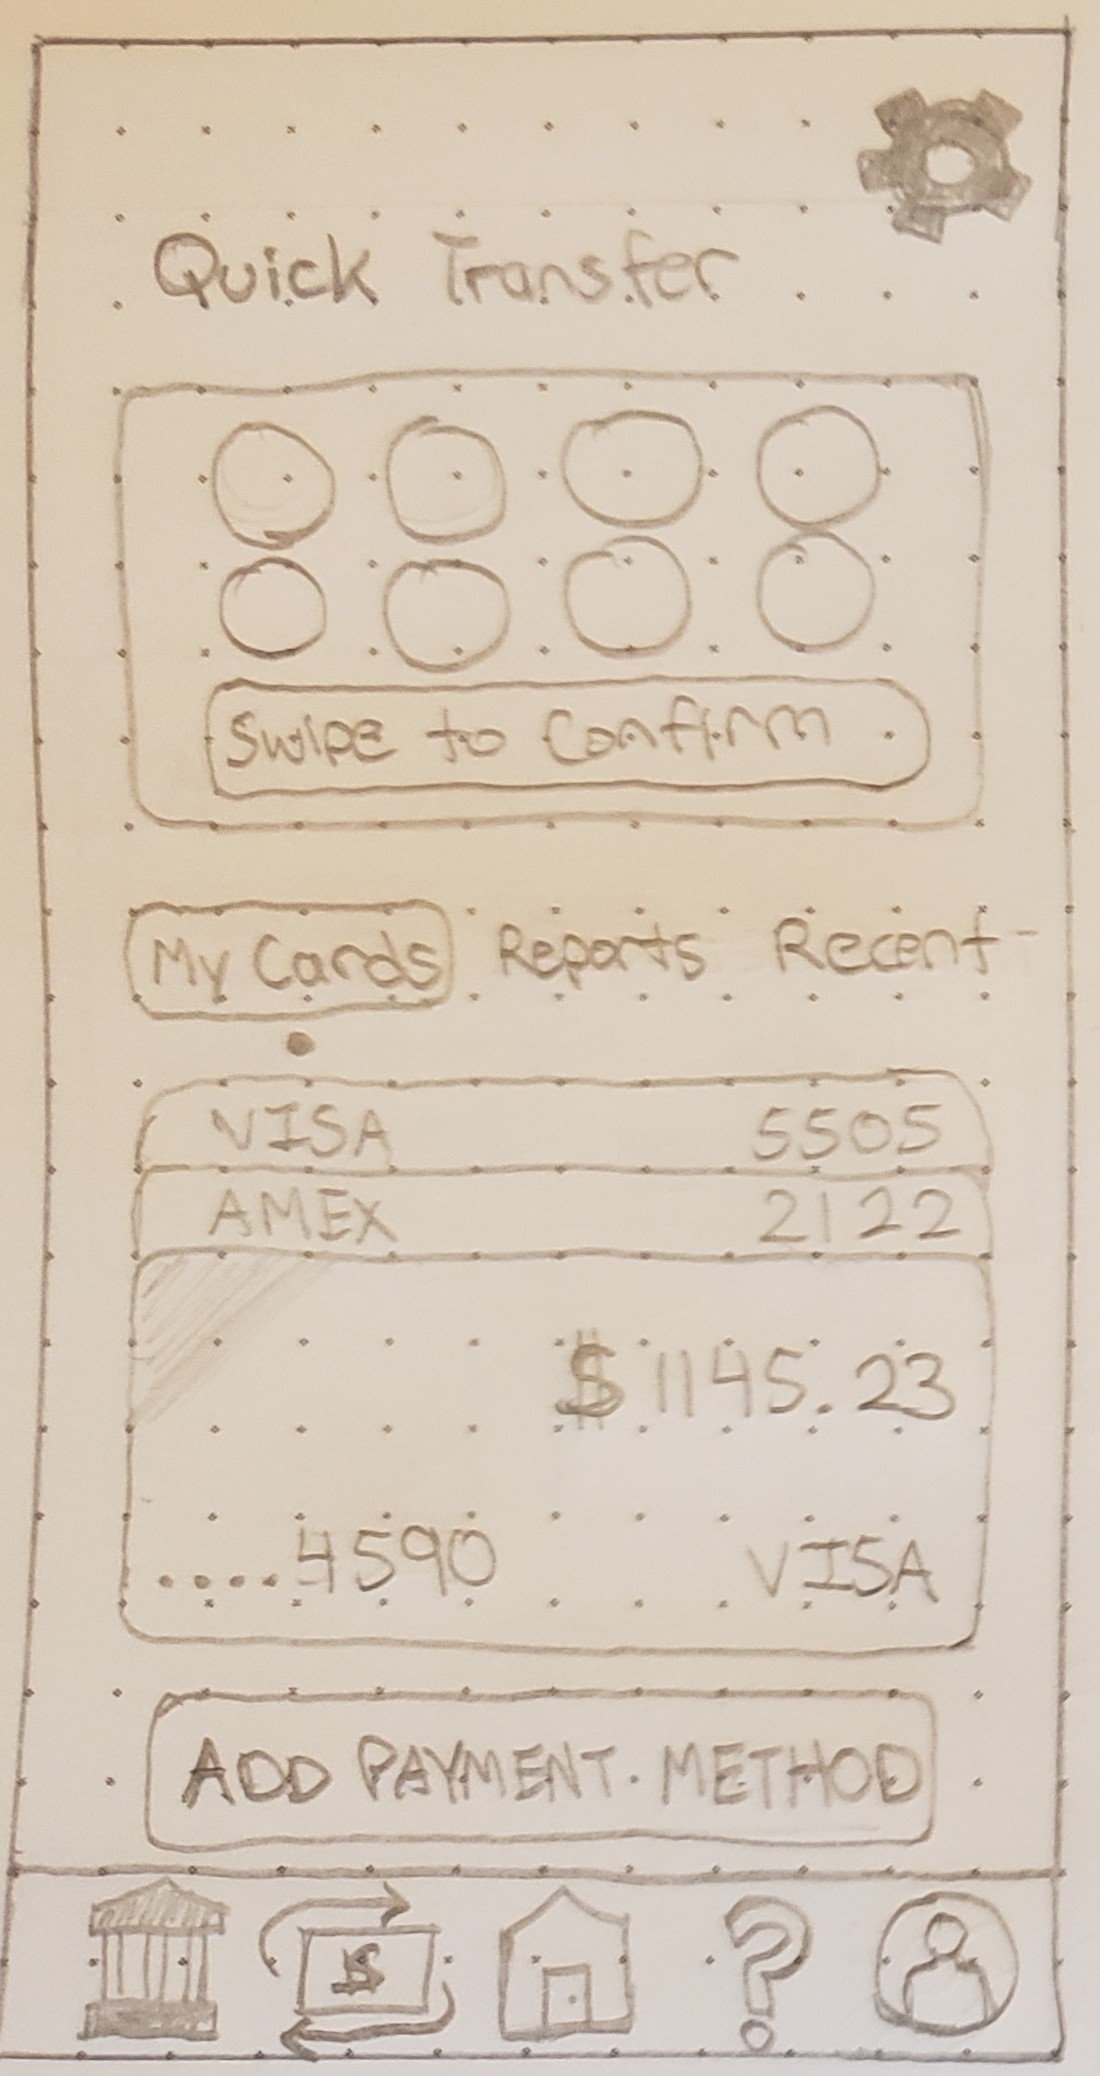 Quick Transfer
Swipe to Confirm
My Cards Reports Recent
VISA 5505
AMEX 2122
$1145.23
....4590 VISA
ADD PAYMENT METHOD
$ ?